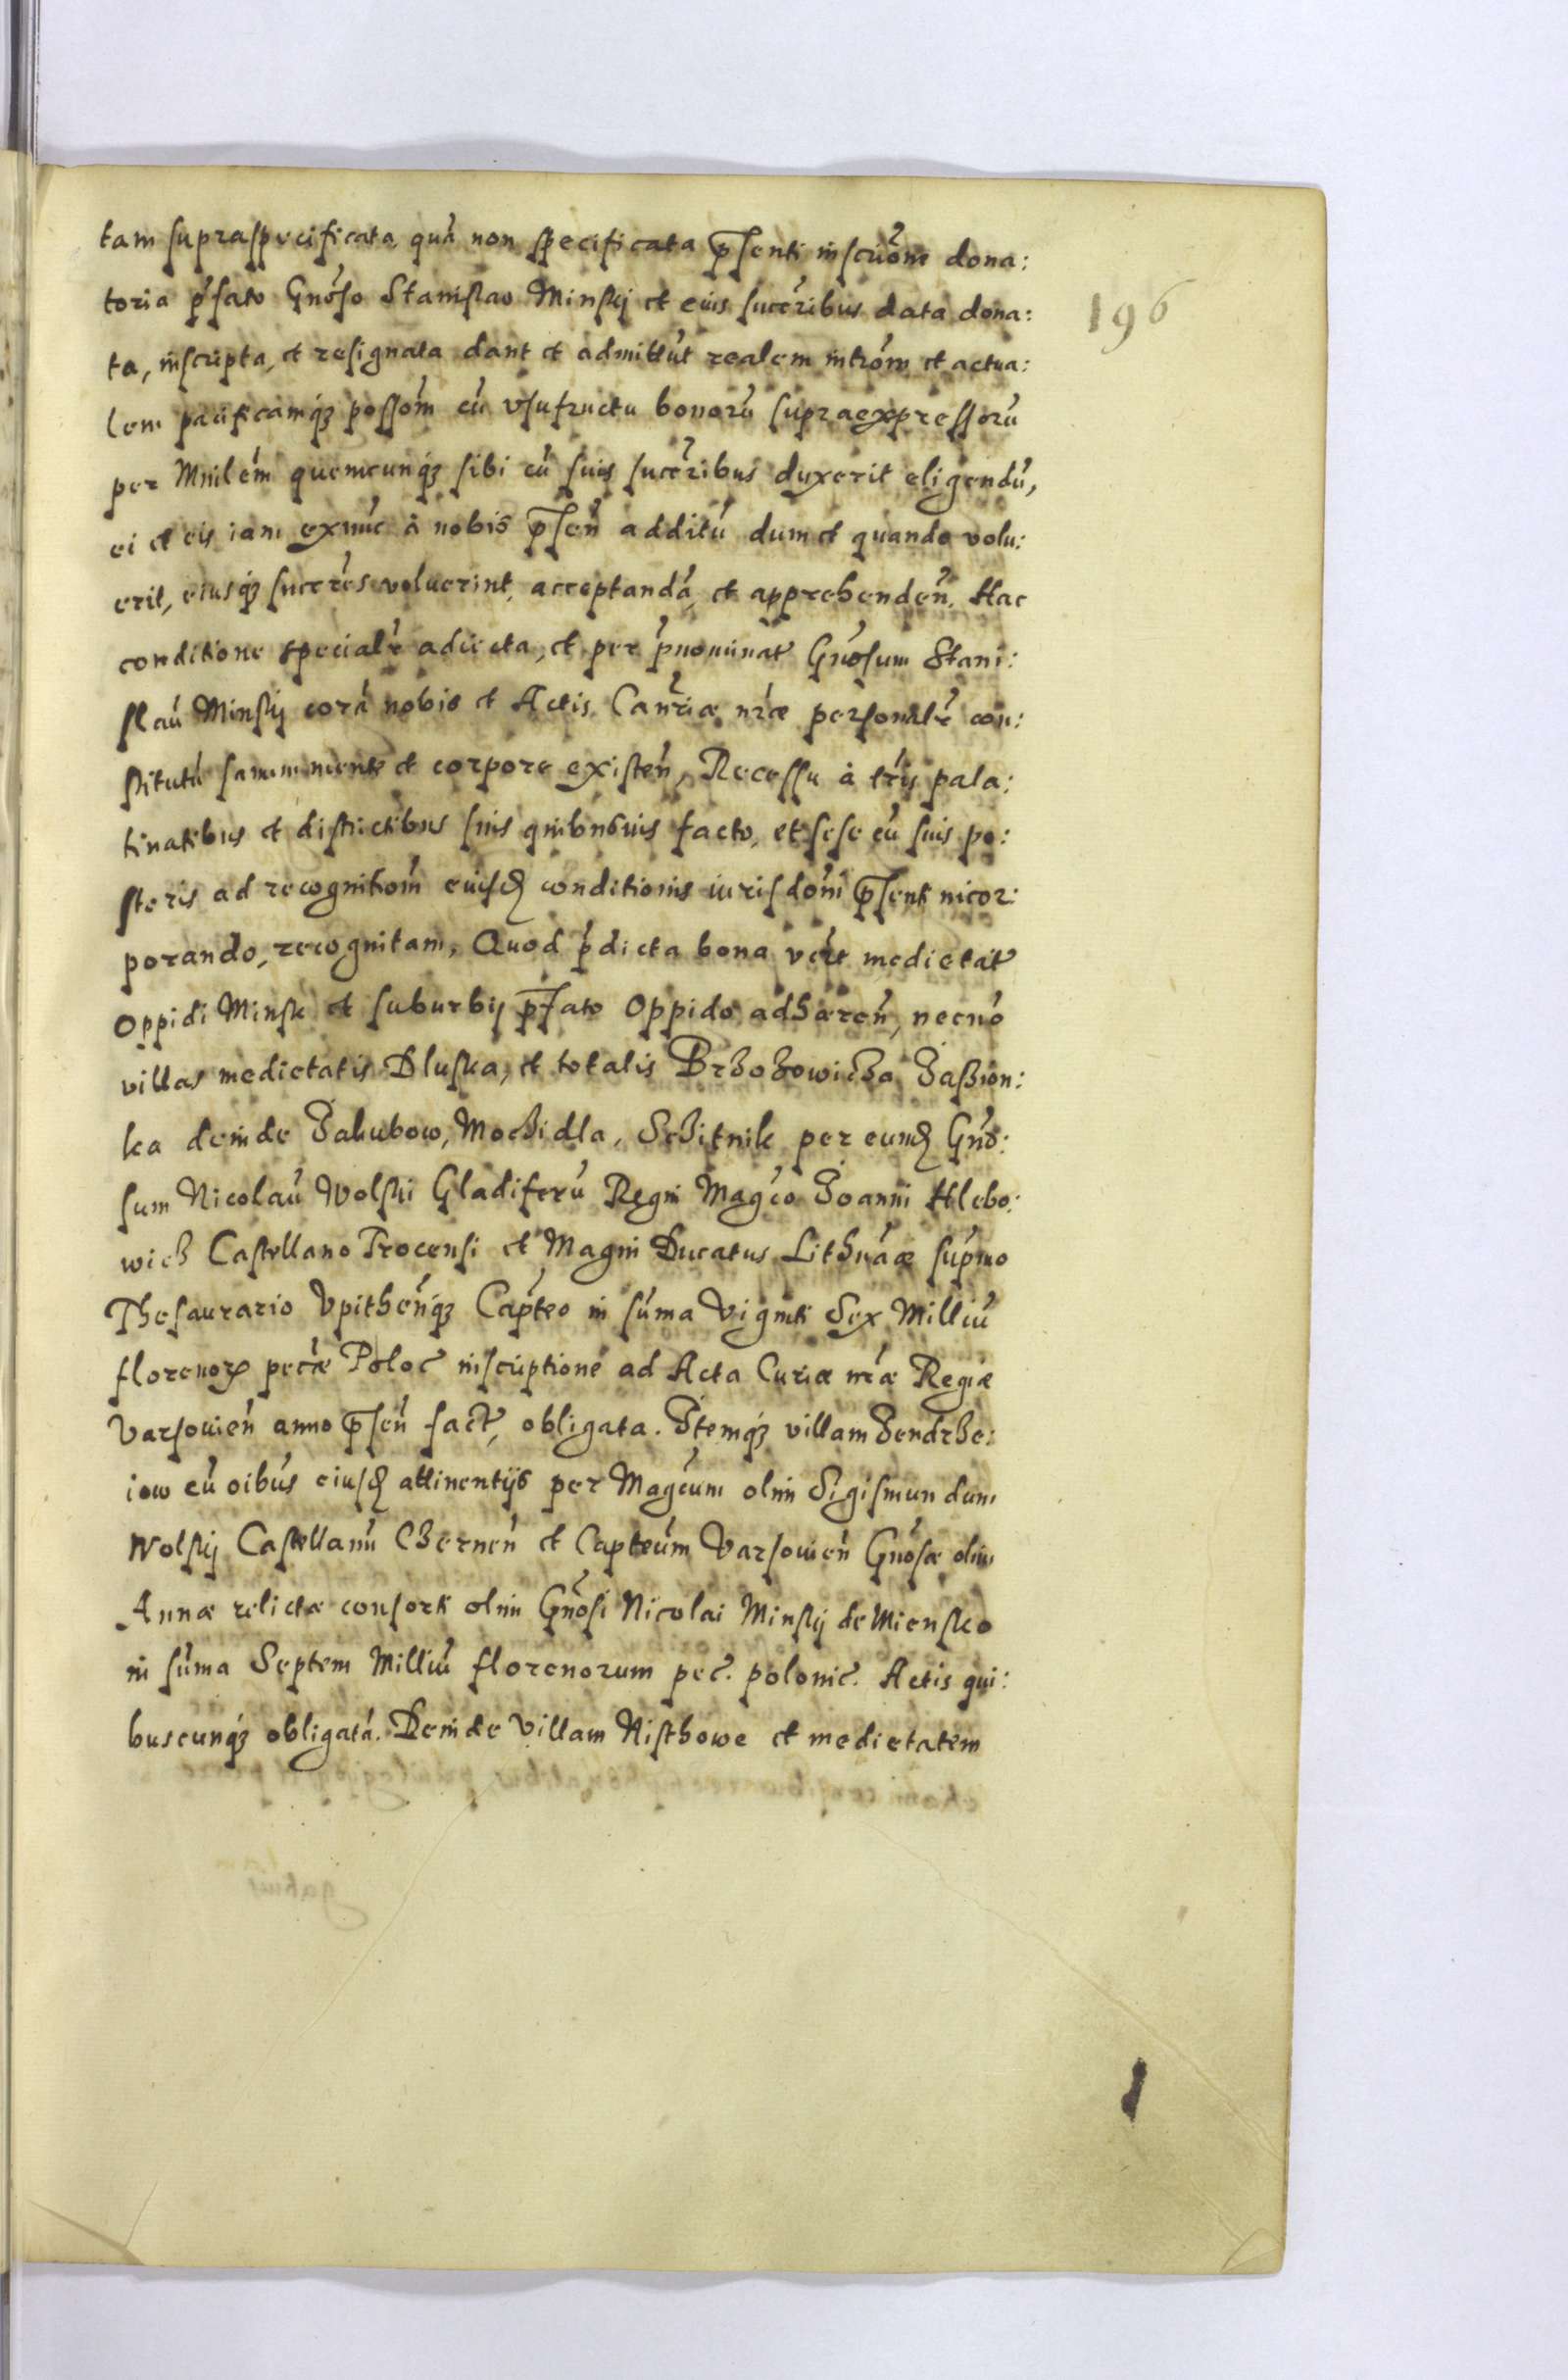 tam supraspecificata, quā non specificata p̄senti inscriōne dona:
toria p̄fato Gnōso Stanislao Minskij et eius succribus data dona:
ta, inscripta, et resignata dant et admittūt realem intrōm et actua:
lem pacificamqꝫ possōm cū vsufructu bonorū supraexpressorū
per Mnilēm quemcunqꝫ sibi cū suis succribus duxerit eligendū,
ei et eis iam exnūc à nobis p̄sen̄ additū dum et quando volu:
erit, eiusqꝫ succres voluerint, acceptandā, et apprehenden̄. Hac
conditione specialr̄ adiecta, et per p̄nominat Gnōsum Stani:
slaū Minskij corā nobis et Actis Canc̄riæ nr̄æ personalr̄ con:
stitutū sanum mente et corpore existen̄, Recessu à tr̄is pala:
tinatibus et districtibus suis quibusuis facto, et sese cū suis po:
steris ad recognitiōm eiusd conditionis iurisdōni p̄senti incor:
porando, recognitam, Quod p̄dicta bona vc̄lt medietat
Oppidi Minsk et suburbij p̄fato Oppido adhæren̄, necnō
villas medietatis Dluska, et totalis Brzozowicza Jassion:
ka deinde Jakubow, Moczidla, Sczitnik per eund Gnō:
sum Nicolaū Wolski Gladiferū Regni Magc̄o Joanni Hlebo:
wicz Castellano Trocensi et Magni Ducatus Lithuāæ sup̄mo
Thesaurario Vpithen̄qꝫ Capt̄eo in sūma Viginti Sex Milliū
florenorꝝ pec̄æ Poloc̄ inscriptione ad Acta Curiæ nr̄æ Regiæ
Varsouien̄ anno p̄sen̄ fact, obligata. Itemqꝫ villam Jendrze:
iow cū oibus eiusd attinentijs per Magc̄um olim Sigismundum
Wolskij Castellanū Czernen̄ et Capteūm Varsouien̄ Gnōsæ olim
Annæ relictæ consorti olim Gnōsi Nicolai Minskij de Miensko
in sūma Septem Milliū florenorum pec̄. polonic̄. Actis qui:
buscunqꝫ obligatā. Deinde Villam Nisthowe et medietatem
196